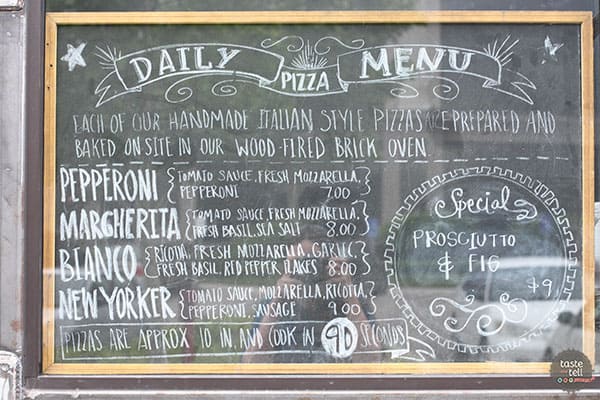 DAILY PIZZA MENU
EACH OF OUR HANDMADE ITALIAN STYLE PIZZAS ARE PREPARED AND
BAKED ON SITE IN OUR WOOD-FIRED BRICK OVEN.
PEPPERONI {TOMATO SAUCE, FRESH MOZZARELLA,
PEPPERONI 7.00}
MARGHERITA {TOMATO SAUCE, FRESH MOZZARELLA,
FRESH BASIL, SEA SALT 8.00}
BIANCO {RICOTTA, FRESH MOZZARELLA, GARLIC,
FRESH BASIL, RED PEPPER FLAKES 8.00}
NEW YORKER {TOMATO SAUCE, MOZZARELLA, RICOTTA,
PEPPERONI, SAUSAGE 9.00}
PIZZAS ARE APPROX 10 IN, AND COOK IN 90 SECONDS
Special
PROSCIUTTO
& FIG
$9
taste
tell